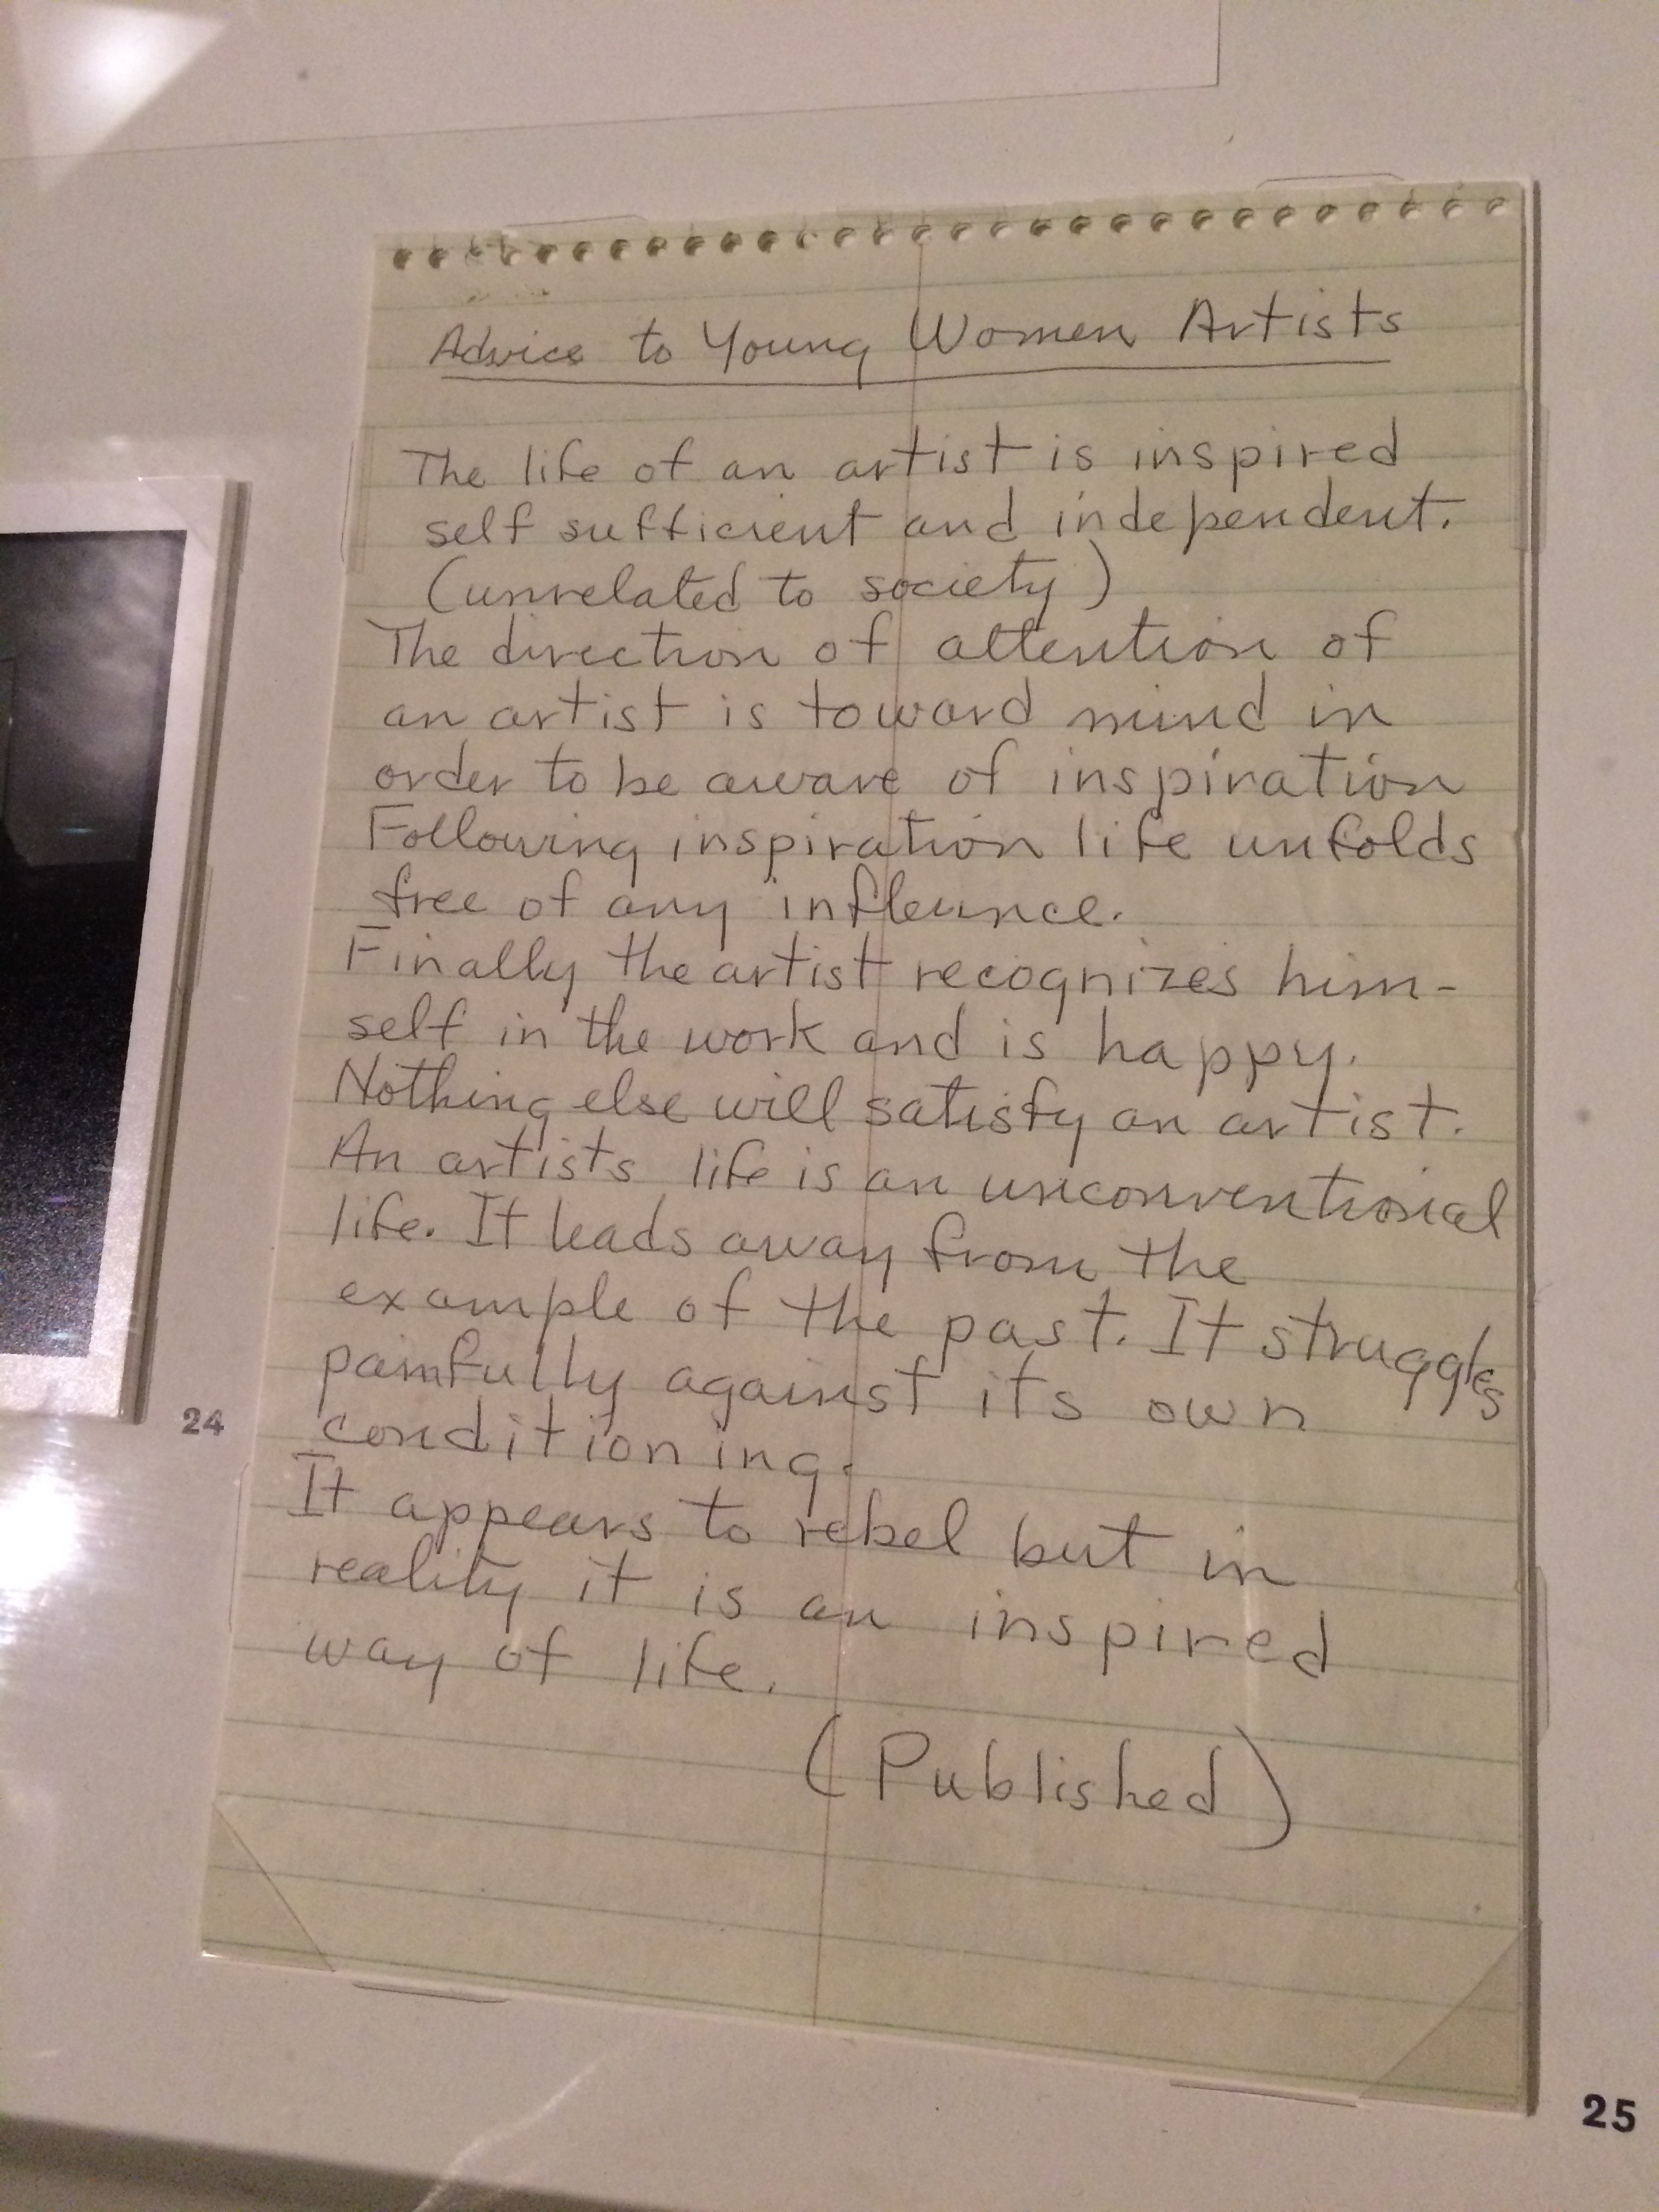 Advice to Young Women Artists
The life of an artist is inspired
self sufficient and independent.
(unrelated to society)
The direction of attention of
an artist is toward mind in
order to be aware of inspiration
Following inspiration life unfolds
free of any influence.
Finally the artist recognizes him-
self in the work and is happy.
Nothing else will satisfy an artist.
An artists life is an unconventional
life. It leads away from the
example of the past. It struggles
painfully against its own
conditioning.
It appears to rebel but in
reality it is an inspired
way of life.
(Published)
24
25